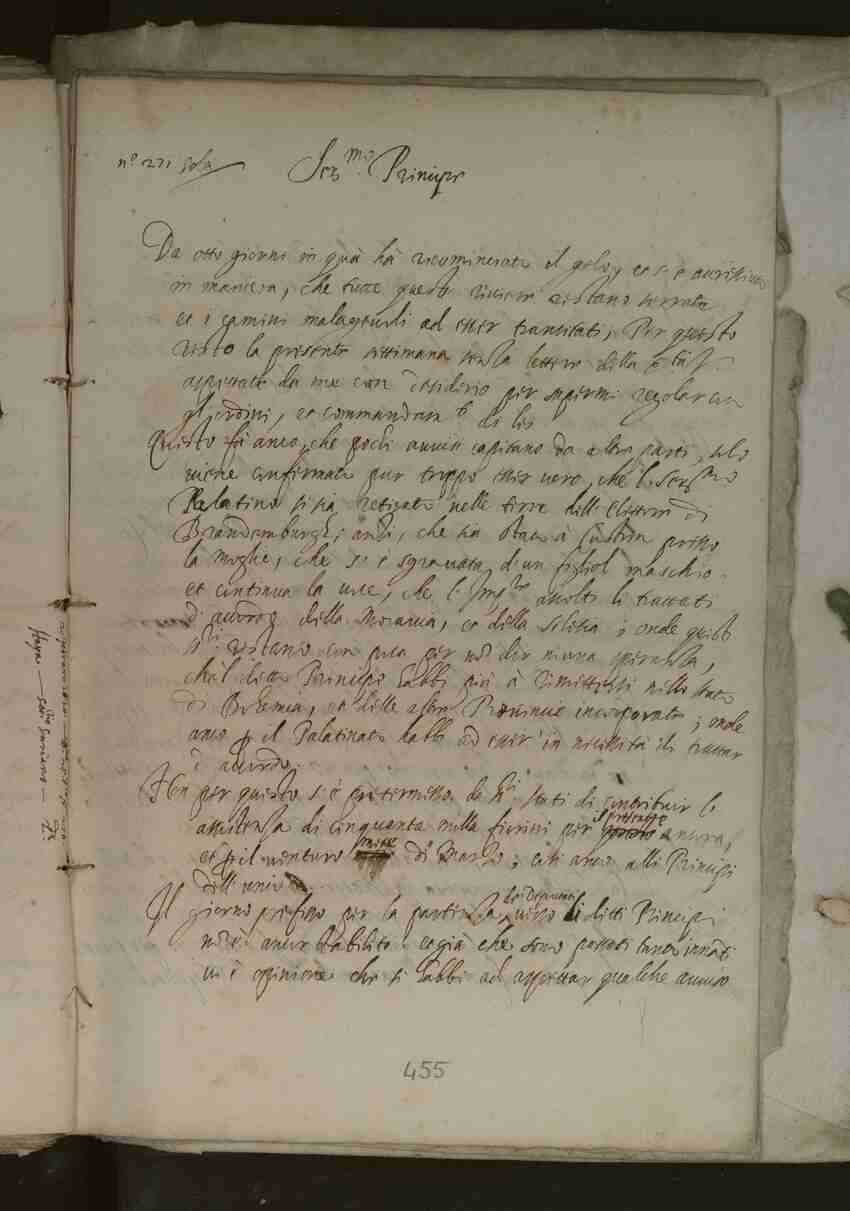 n.o 271 sola
Ser.mo Principe
Da otto giorni in quà hà ricominciato il gelo, et si è
in maniera, che tutte queste riviere restano serrate
et i camini malagevoli ad esser transitati, Per questo
resto la presente settimana senza lettere della S.tà V.
aspettate da me con desiderio per sapermi regolar con
gl'ordini, et commandam.ti di lei
Questo fà anco, che pochi avvisi capitano da altra parte, solo
viene confirmato pur troppo esser vero, che 'l Ser.mo
Palatino si sia retirato nelle terre dell'Elettor di
Brandemburgh; anzi, che sia stato à Custrin presso
la moglie, che si è sgravata d'un figliol maschio.
et continua la voce, che l'Imp.re ascolti li trattati
d'accordo della Moravia, et della Silesia; onde questi
S.ri restano con poca per non dir niuna speranza,
che 'l detto Principe habbi più à rimettersi nello stato
di Bohemia, et delle altre Provincie incorporate; onde
anco p il Palatinato habbi ad esser in necessità di trattar
l'accordo.
Non per questo si è pretermesso da S.ri Stati di contribuir le
assistenza di cinquanta mille fiorini per il presente ancora,
et p il venturo mese di Marzo; cosi anco alli Principi
dell'unione
Il giorno prefisso per la partenza dei Deputati verso li detti Principi
non è ancor stabilito. et già che sono passati tanto innanti
vi è opinione che si habbi ad aspettar qualche avviso
455
Haya